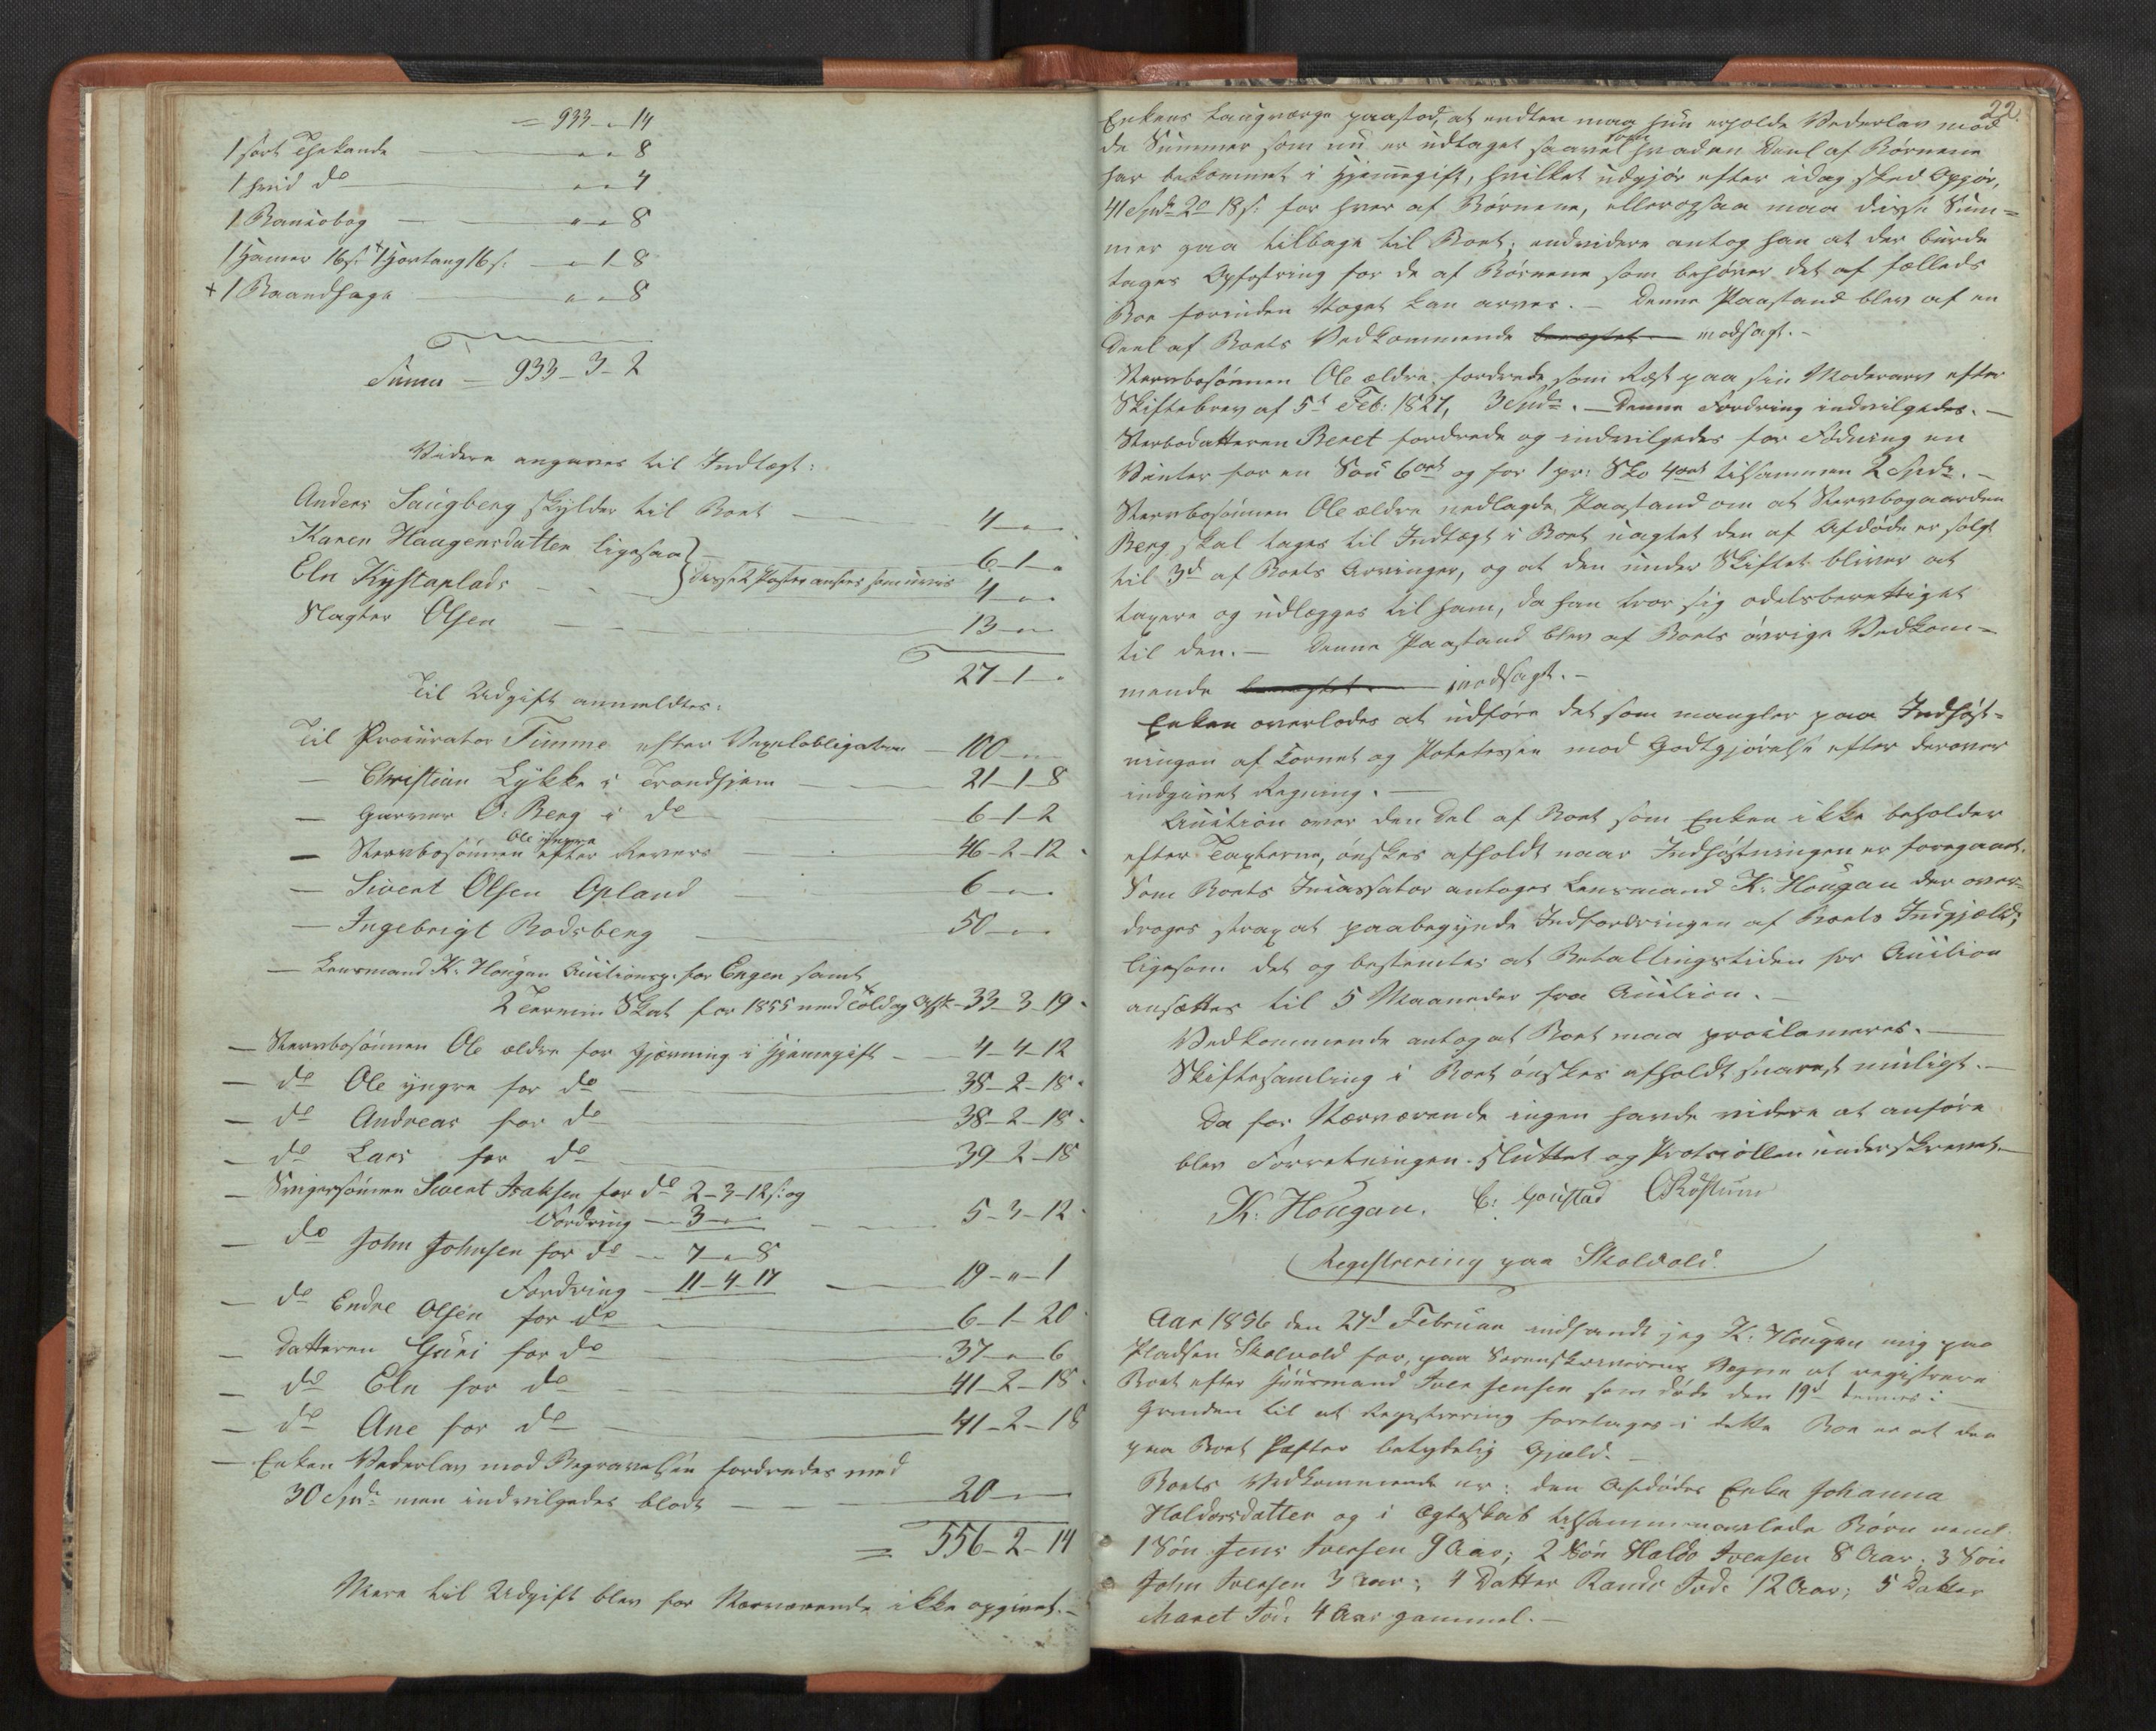 = 933 - " - 14
1 sort Thekande — " - " - 8
1 hvid do — " - " - 4
1 Bauiobog — " - " - 8
1 Hamer 16 s: + 1 Hovtang 16 s: — " - 1 - 8
+ 1 Raandsage — " - " - 8
Suma = 933 - 3 - 2
Videre angaves til Indtægt:
Anders Saugberg skylder til Boet — 4 - " - "
Karen Haagensdatter ligesaa — 6 - 1 - "
Eln Kystaplads — disse 2 Poster ansees som uvis 4 - " - "
Slagter Olsen — 13 - " - "
27 - 1 - "
Til Udgift anmeldtes:
Til Procurator Timme efter Vexelobligation — 100 - " - "
— Christian Lykke i Trondhjem — 21 - 1 - 8
— Garver O: Berg i do — 6 - 1 - 2
— Stervbosönnen Ole yngre efter Revers — 46 - 2 - 12
— Sivert Olsen Opland — 6 - " - "
— Ingebrigt Rodsberg — 50 - " - "
— Lensmand K. Hougan Auctionsp: for Engen samt
2 Termin Skat for 1855 med Told og Afsk - 33 - 3 - 19
— Stervbosönnen Ole ældre for Gjævning i Hjemmegift — 4 - 4 - 12
— do Ole yngre for do — 38 - 2 - 18
— do Andreas for do — 38 - 2 - 18
— do Lars for do — 39 - 2 - 18
— Svigersönnen Sivert Isaksen for do 2 - 3 - 12 s: og
Fordring — 3 - " - " — 5 - 3 - 12
— do John Johnsen for do — 7 - " - 8
Fordring — 11 - 4 - 17 — 19 - " - 1
— do Endre Olsen for do — 6 - 1 - 20
— Datteren Guri for do — 37 - " - 6
— do Eln for do — 41 - 2 - 18
— do Ane for do — 41 - 2 - 18
— Enken Vederlav mod Begravelsen fordredes med
30 Spdr men indvilgedes blodt — 20 - " - "
= 556 - 2 - 14
Mere til Udgift blev for Nærværende ikke opgivet. —
22.
Enkens Laugværge paastod, at endten maa hun erholde Vederlav mod
de Summer som nu er udtaget saavel som hvad en Deel af Börnene
har bekommet i Hjemmegift, hvilket udgjör efter idag sked Opgjör,
41 Spdr 2 o 18 s: for hver af Börnene, eller ogsaa maa disse Sum=
mer gaa tilbage til Boet; endvidere antog han at der burde
tages Opfostring for de af Börnene som behöver det af fælleds
Boe forinden Noget kan arves. — Denne Paastand blev af en
Deel af Boets Vedkommende modsagt. —
Stervbosönnen Ole ældre fordrede som Rest paa sin Moderarv efter
Skiftebrev af 5t Feb: 1827, 3 Spdr. — Denne Fordring indvilgedes. —
Sterbodatteren Beret fordrede og indvilgedes for Födning en
Vinter for en Sou 6 ort og for 1 pr: Sko 4 ort tilsammen 2 Spdr. —
Stervbosönnen Ole ældre nedlagde Paastand om at Stervbogaarden
Berg skal tages til Indtægt i Boet uagtet den af Afdöde er solgt
til 3d af Boets Arvinger, og at den under Skiftet bliver at
taxere og udlægges til ham, da han tror sig odelsberettiget
til den. — Denne Paastand blev af Boets övrige Vedkom=
mende modsagt. —
Enken overlodes at udföre det som mangler paa Indhöst=
ningen af Kornet og Poteteser mod Godtgjörelse efter derover
indgivet Regning. —
Auction over den Del af Boet som Enken ikke beholder
efter Taxterne, önskes afholdt naar Indhöstningen er foregaaet.
Som Boets Incassator antoges Lensmand K. Hougan der over=
droges strax at paabegynde Indfordringen af Boets Indgjæld;
ligesom det og bestemtes at Betallingstiden for Auction
ansættes til 5 Maaneder fra Auction. —
Vedkommende antog at Boet maa proclameres. —
Skiftesamling i Boet önskes afholdt snarest muligt. —
Da for Nærværende ingen havde videre at anföre
blev Forretningen sluttet og Protocollen underskrevet. —
K. Hougan. E: Goustad
Registrering paa Skolvold.
Aar 1856 den 27d Februar indfandt jeg K. Hougan mig paa
Pladsen Skolvold for, paa Sorenskriverens Vegne at registrere
Boet efter Huusmand Iver Jensen som döde den 19d dennes: —
Grunden til at Registrering foretages i dette Boe er at der
paa Boet hæfter betydelig Gjæld. —
Boets Vedkommende er: den Afdödes Enke Johanna
Haldorsdatter og i Ægteskab tilsammenavlede Börn neml:
1 Sön Jens Iversen 9 Aar; 2 Sön Haldo Iversen 8 Aar; 3 Sön
John Iversen 3 Aar; 4 Datter Randi Ivd: 12 Aar; 5 Datter
Maret Ivd: 4 Aar gammel. —